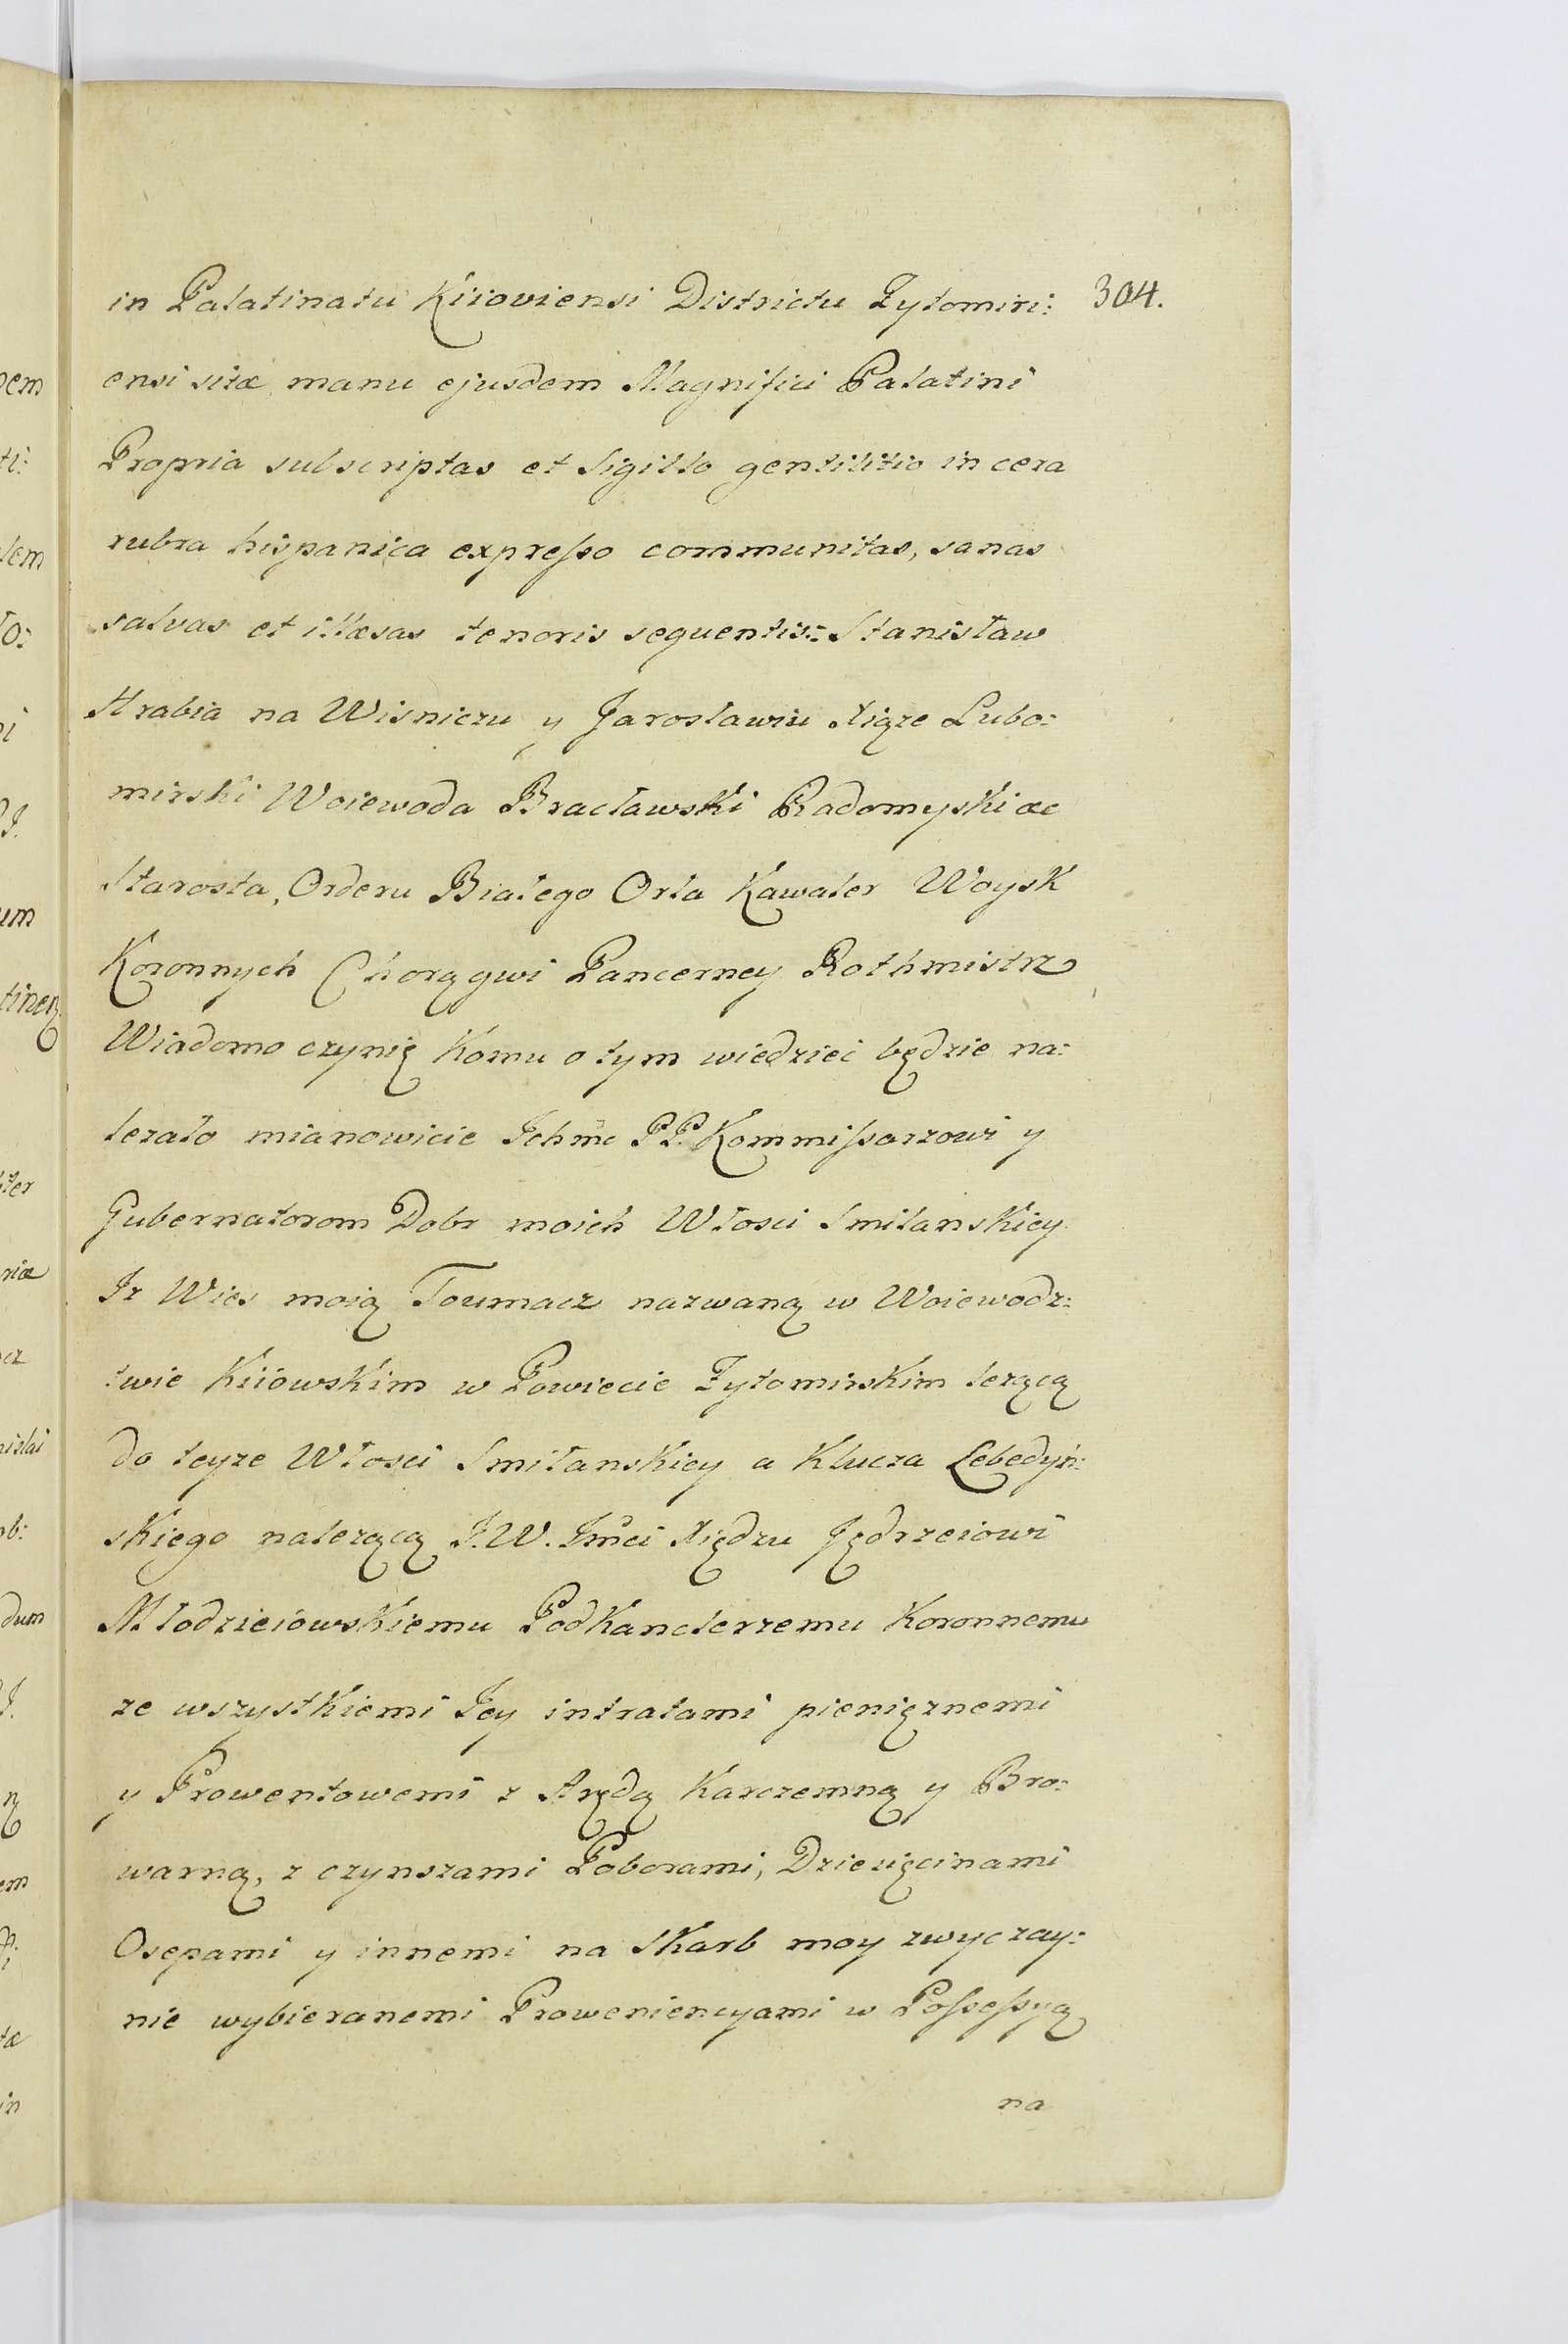 in Palatinatu Kiioviensi Districtu Zytomiri: 304.
ensi sitæ manu ejusdem Magnifici Palatini
Propria subscriptas et Sigillo gentilitio in cera
rubra hispanica expreſso communitas, sanas
salvas et illæsas tenoris sequentis:= Stanisław
Hrabia na Wisniczu y Jarosławiu Xiąze Lubo:
mirski Woiewoda Bracławski Radomyski &c
Starosta, Orderu Białego Orła Kawaler Woysk
Koronnych Chorągwi Pancerney Rothmistrz
Wiadomo czynię Komu o tym wiedzieć będzie na:
lezało mianowicie Ichmc PP. Kommiſsarzowi y
Gubernatorom Dobr moich Włosci Smilanskiey
Iz Wies moią Toumacz nazwaną w Woiewodz:
twie Kiiowskim w Powiecie Zytomirskim lezącą
do teyze Włosci Smilanskiey a Klucza Lebedyń:
skiego nalezącą J.W. Jmci Xiędzu Jędrzeiowi
Młodzieiowskiemu PodKanclerzemu Koronnemu
ze wszystkiemi Jey intratami pienięznemi
y Prowentowemi z Arędą Karczemną y Bro:
warną, z czynszami Poborami, Dziesięcinami
Osepami y innemi na Skarb moy zwyczay:
nie wybieranemi Proweniencyami w Poſseſsyą
na